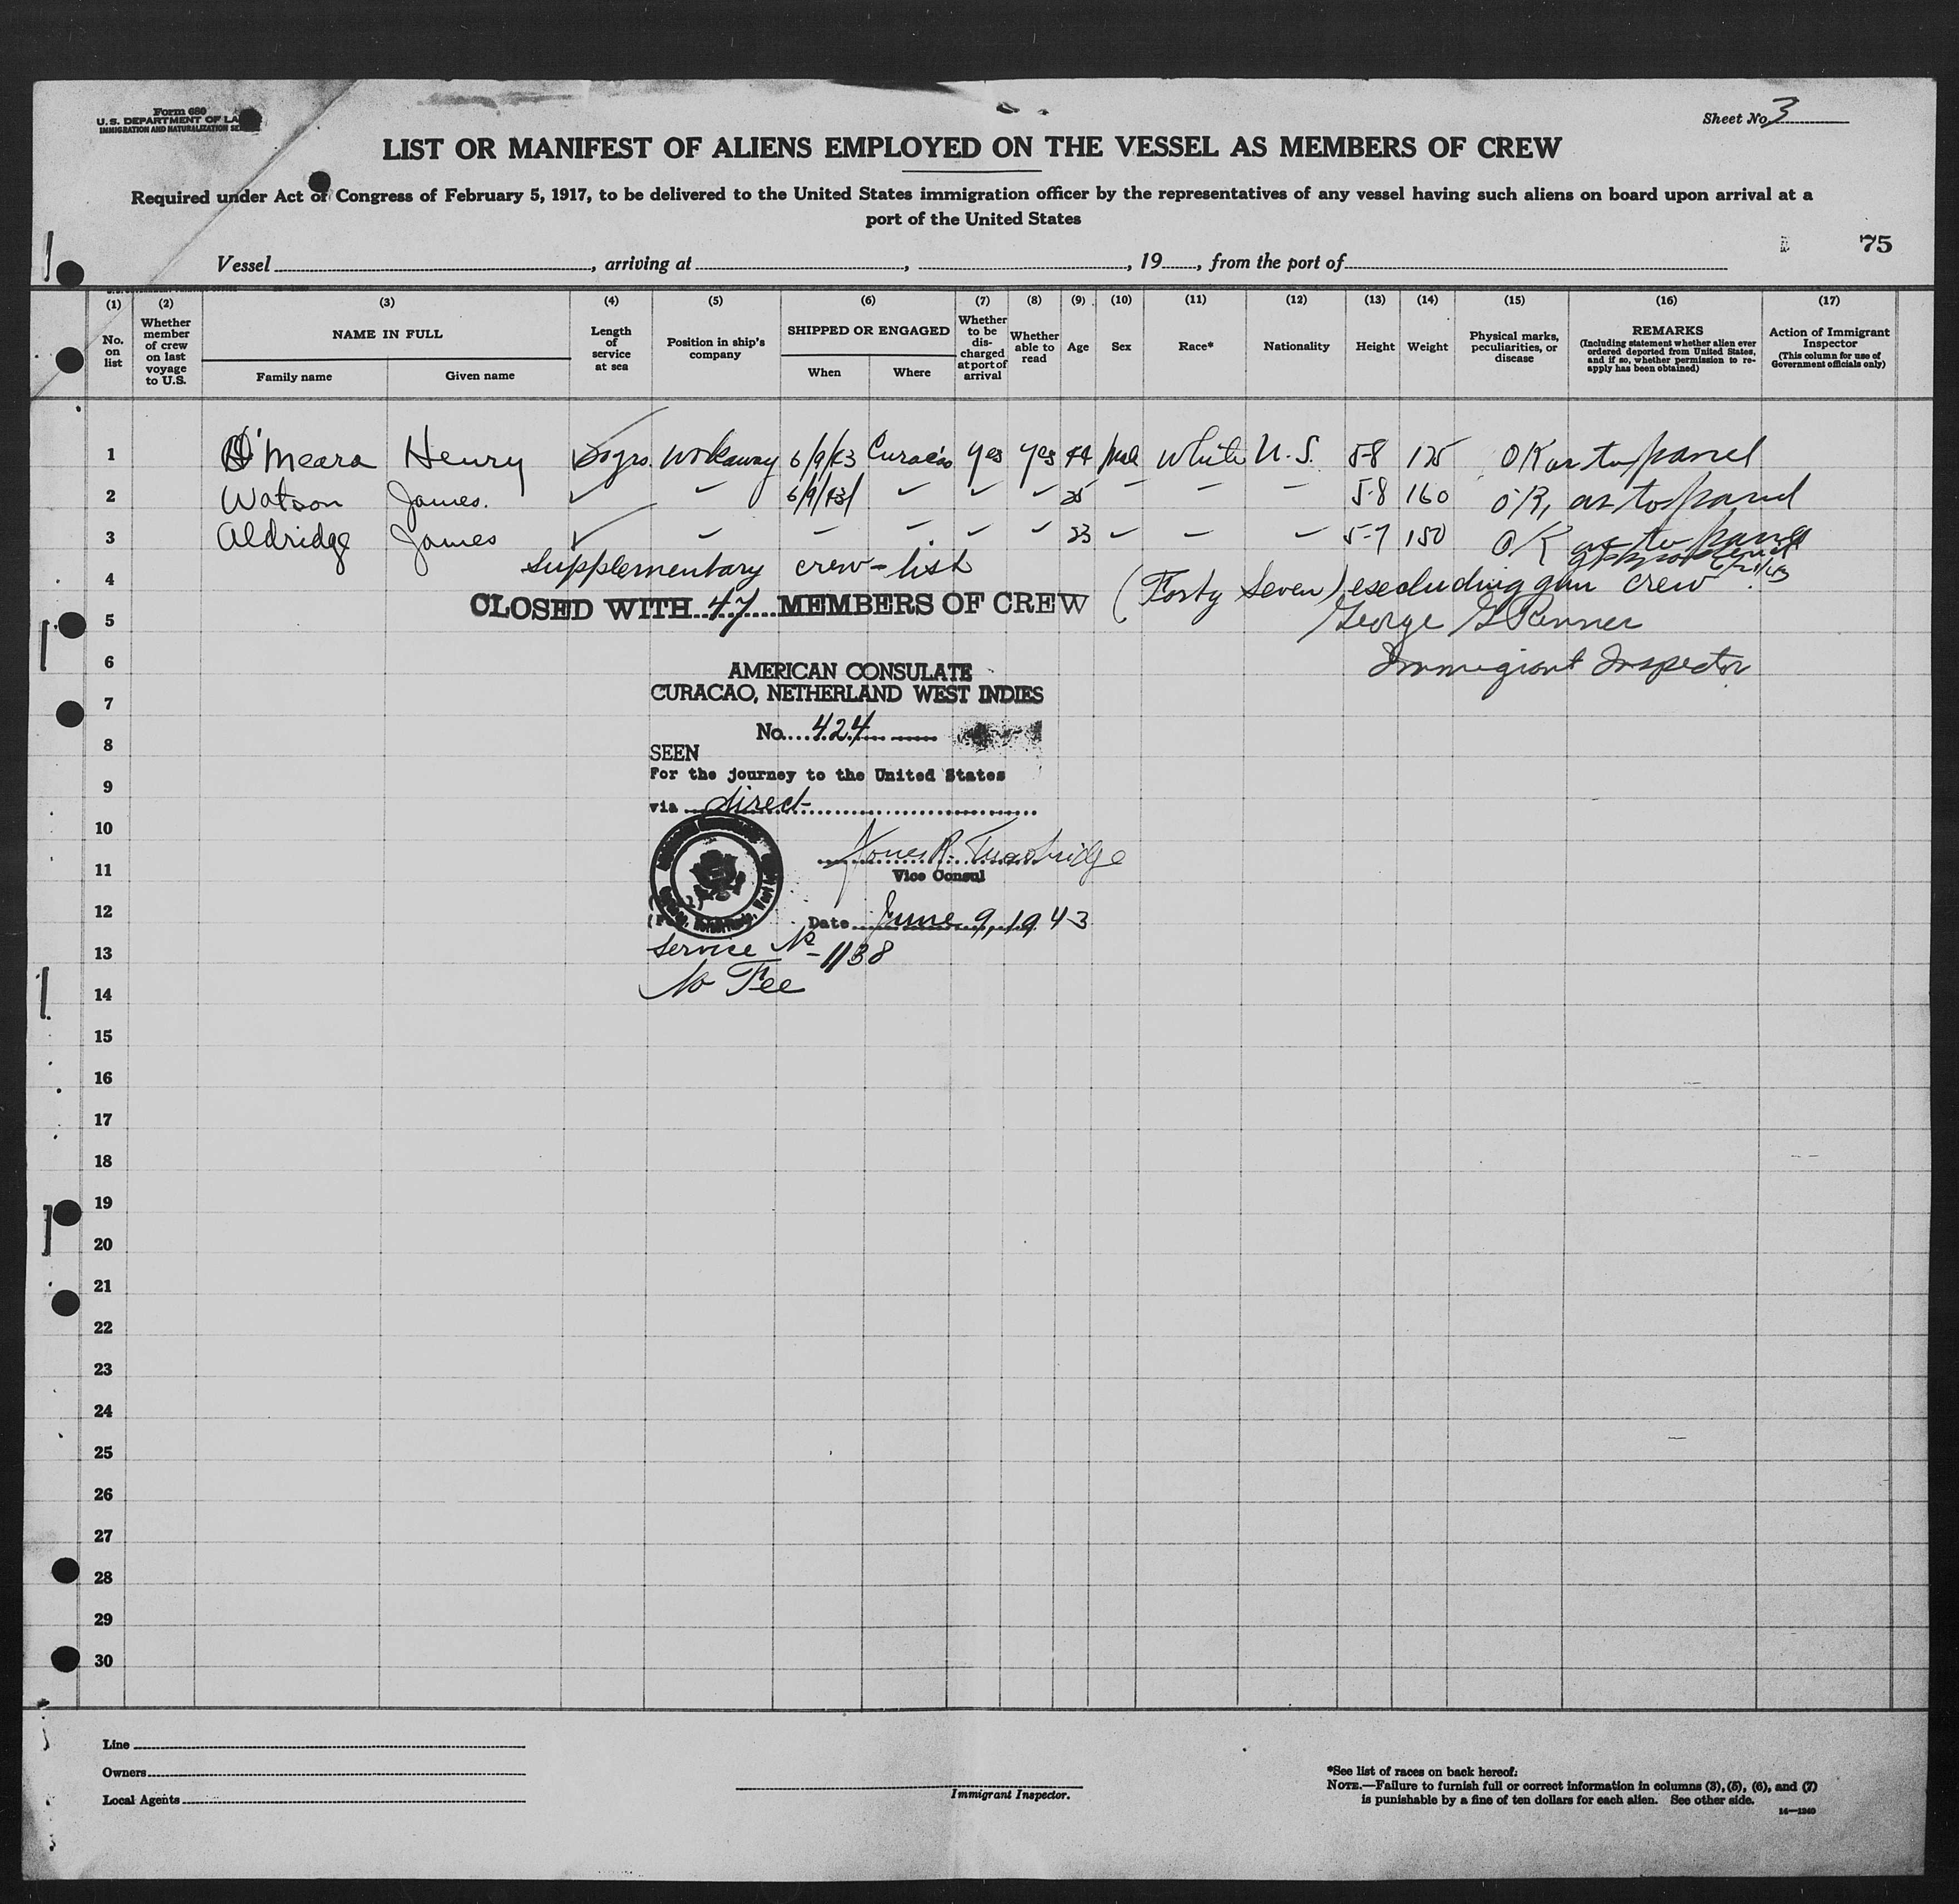 Form 680
U.S. DEPARTMENT OF LA
IMMIGRATION AND NATURALIZATION SE
Sheet No. 3
LIST OR MANIFEST OF ALIENS EMPLOYED ON THE VESSEL AS MEMBERS OF CREW
Required under Act of Congress of February 5, 1917, to be delivered to the United States immigration officer by the representatives of any vessel having such aliens on board upon arrival at a
port of the United States
75
Vessel, arriving at, , 19, from the port of
(1) (2) (3) (4) (5) (6) (7) (8) (9) (10) (11) (12) (13) (14) (15) (16) (17)
No. on list
Whether member of crew on last voyage to U.S.
NAME IN FULL
Family name
Given name
Length of service at sea
Position in ship's company
SHIPPED OR ENGAGED
When
Where
Whether to be discharged at port of arrival
Whether able to read
Age
Sex
Race*
Nationality
Height
Weight
Physical marks, peculiarities, or disease
REMARKS
(Including statement whether alien ever ordered deported from United States, and if so, whether permission to re-apply has been obtained)
Action of Immigrant Inspector
(This column for use of Government officials only)
1 O'Meara Henry yrs. workaway 6/9/43 Curacao yes yes 44 male white U.S. 5-8 125 OK as to panel
2 Watson James. 6/9/43 35 5-8 160 OK, as to panel
3 Aldridge James 23 5-7 150 OK as to panel
Supplementary crew-list
4
CLOSED WITH 47 MEMBERS OF CREW (Forty Seven) excluding gun crew 6/21/43
5 George Renner
6 Immigrant Inspector
AMERICAN CONSULATE
CURACAO, NETHERLAND WEST INDIES
7
No. 424
8
SEEN
For the journey to the United States
9
via direct
10
11
Vice Consul
12
Date June 9, 1943
13
Service No - 1138
No Fee
14
15
16
17
18
19
20
21
22
23
24
25
26
27
28
29
30
Line
Owners
Local Agents
Immigrant Inspector.
*See list of races on back hereof.
NOTE.—Failure to furnish full or correct information in columns (3), (5), (6), and (7)
is punishable by a fine of ten dollars for each alien. See other side.
14—1240